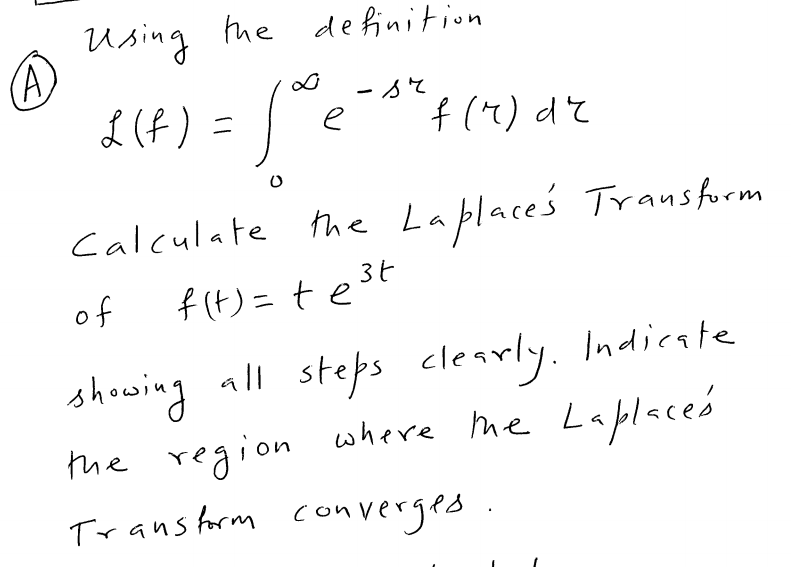 Using the definition
(A)
L(f) = ∫₀^∞ e^{-sτ} f(τ) dτ
Calculate the Laplace's Transform
of f(t) = t e^{3t}
showing all steps clearly. Indicate
the region where the Laplace's
Transform converges.